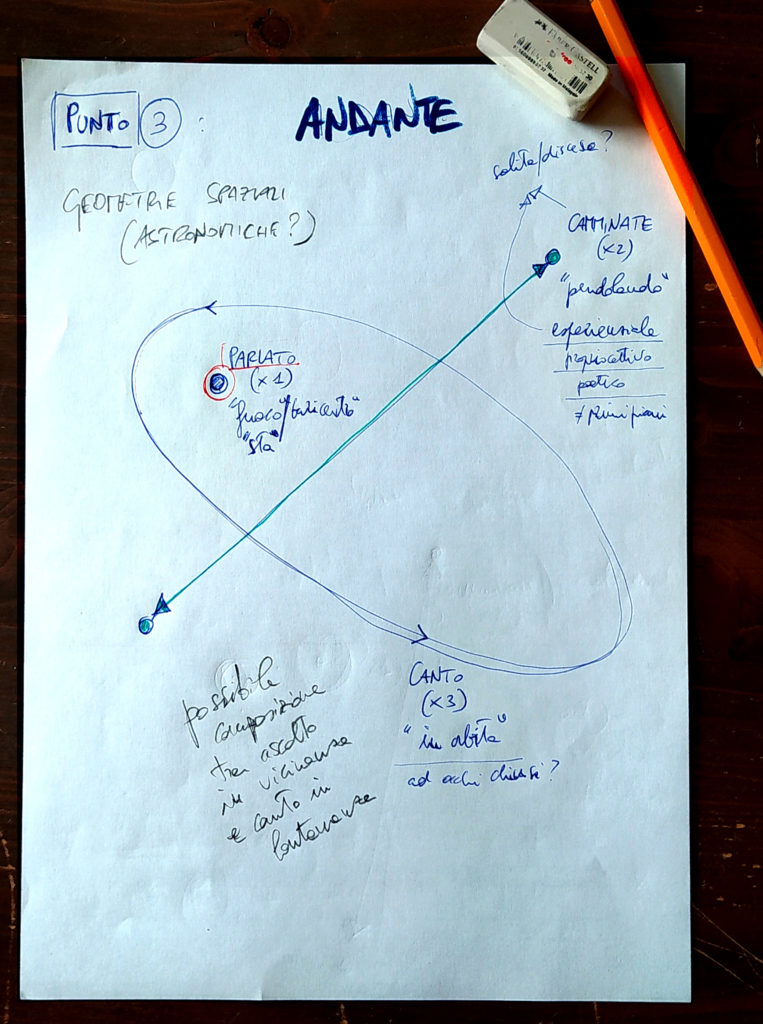 PUNTO 3 :
ANDANTE
GEOMETRIE SPAZIALI
(ASTRONOMICHE?)
salita/discesa?
CAMMINATE
(x2)
"pendolando"
esperienziale
propriocettivo
poetico
≠ Primi piani
PARLATO
(x 1)
"fuoco"/baricentro"
"sta"
CANTO
(x3)
"in orbita"
ad occhi chiusi?
possibile
composizione
tra ascolto
in vicinanza
e canto in
lontananza